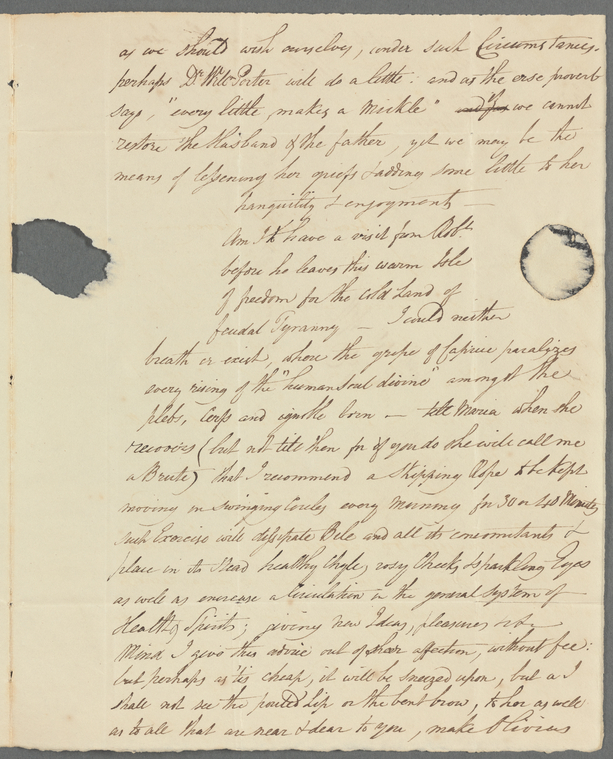 as we should wish ourselves, under such Circumstances.
perhaps Dr Wm Porter will do a little: and as the erse proverb
says, "every little, makes a Mickle" we cannot
restore the Husband & the father, yet we may be the
means of lessening her griefs & adding some little to her
tranquility & enjoyments —
Am I to have a visit from Robt
before he leaves this warm Isle
of freedom for the cold Land of
feudal Tyranny — I could neither
breath or exist, where the gripe of Caprice paralizes
every rising of the "human Soul divine" amongst the
plebs, Cerfs and ignoble born — tell Maria when she
recovers (but not till then for if you do she will call me
a Brute) that I recommend a Skipping Rope to be kept
moving in swinging Circles every Morning for 30 or 40 Minutes
such Exercise will dissipate Bile and all its concomitants &
place in its Stead healthy Chyle, rosy Cheeks & sparkling Eyes
as well as encrease a Circulation in the general System of
Health, Spirits; giving new Ideas, pleasures &
Mind I give this advice out of shear affection, without fee:
but perhaps as 'tis cheap, it will be sneezed upon, but as I
shall not see the pouted Lip or the bent brow, to her as well
as to all that are near & dear to you, make